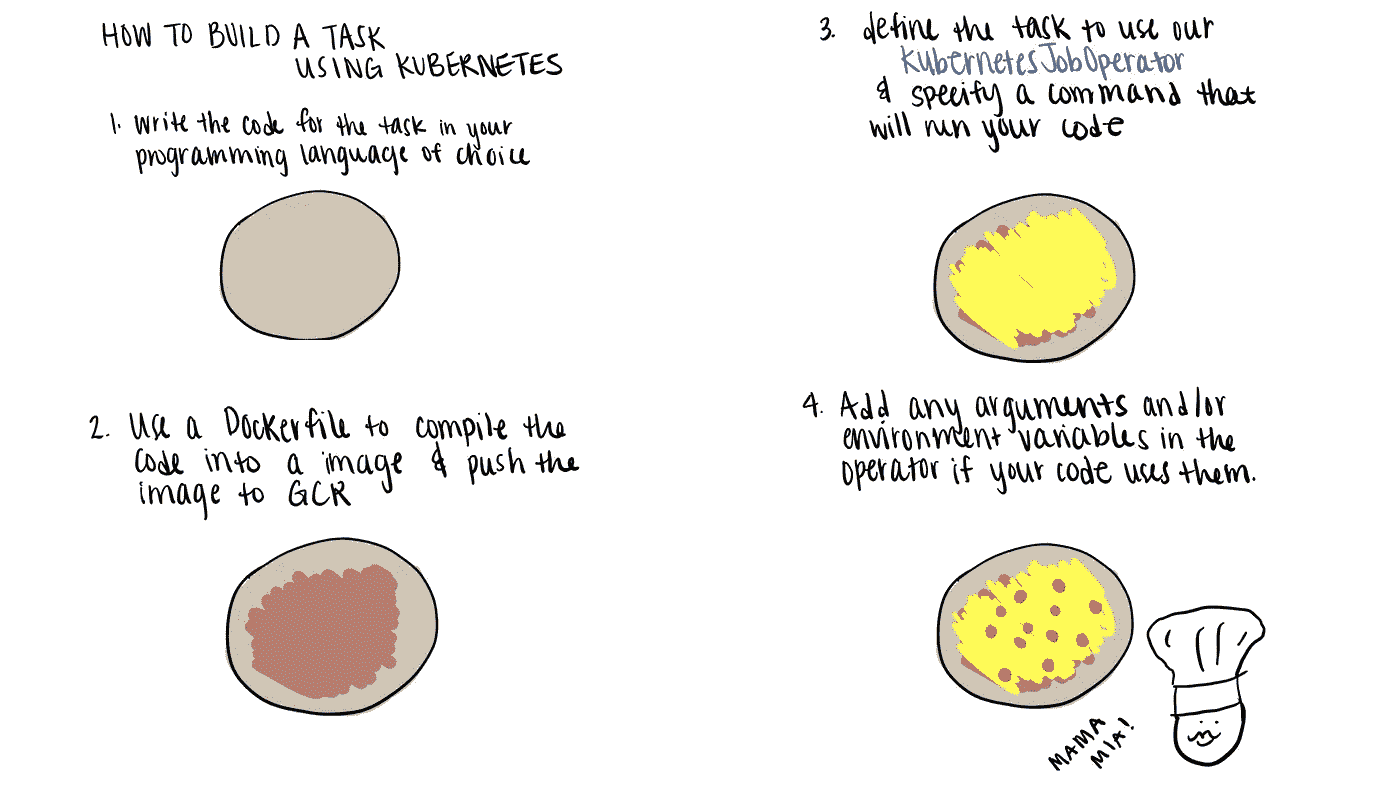 HOW TO BUILD A TASK
USING KUBERNETES
1. Write the code for the task in your
programming language of choice
2. Use a Dockerfile to compile the
code into a image & push the
image to GCR
3. define the task to use our
KubernetesJobOperator
& specify a command that
will run your code
4. Add any arguments and/or
environment variables in the
operator if your code uses them.
MAMA
MIA!